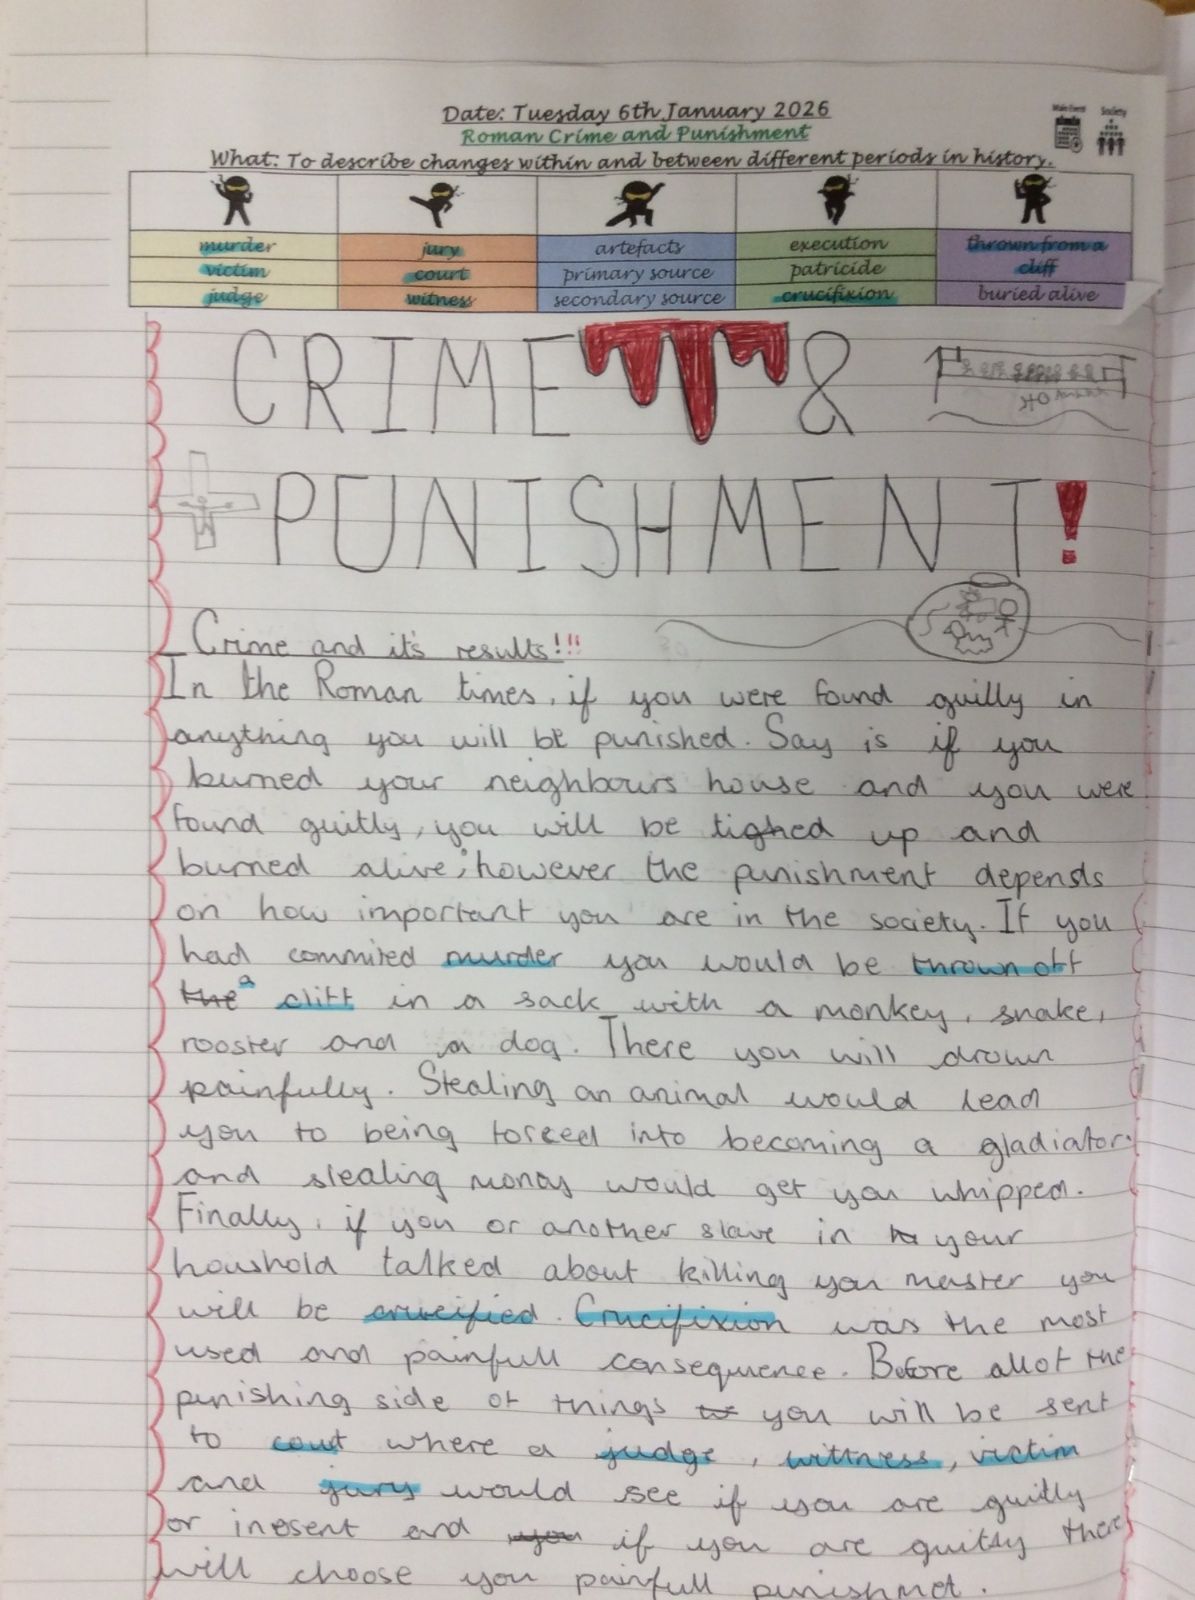 Date: Tuesday 6th January 2026
Main Event
Society
Roman Crime and Punishment
What: To describe changes within and between different periods in history.
murder jury artefacts execution thrown from a cliff
victim court primary source patricide
judge witness secondary source crucifixion buried alive
CRIME &
PUNISHMENT!
Crime and it's results!!!
In the Roman times, if you were found guilly in
anything you will be punished. Say is if you
burned your neighbours house and you were
found guitly, you will be tighed up and
burned alive; however the punishment depends
on how important you are in the society. If you
had commited murder you would be thrown off
the a cliff in a sack with a monkey, snake,
rooster and a dog. There you will drown
painfully. Stealing an animal would lead
you to being forceed into becoming a gladiator
and stealing money would get you whipped.
Finally, if you or another slave in your
houshold talked about killing you master you
will be crucified. Crucifixion was the most
used and painfull consequence. Before all of the
punishing side of things you will be sent
to court where a judge, wittness, victim
and jury would see if you are guitly
or inosent and you if you are guitly there
will choose you painfull punishmet.